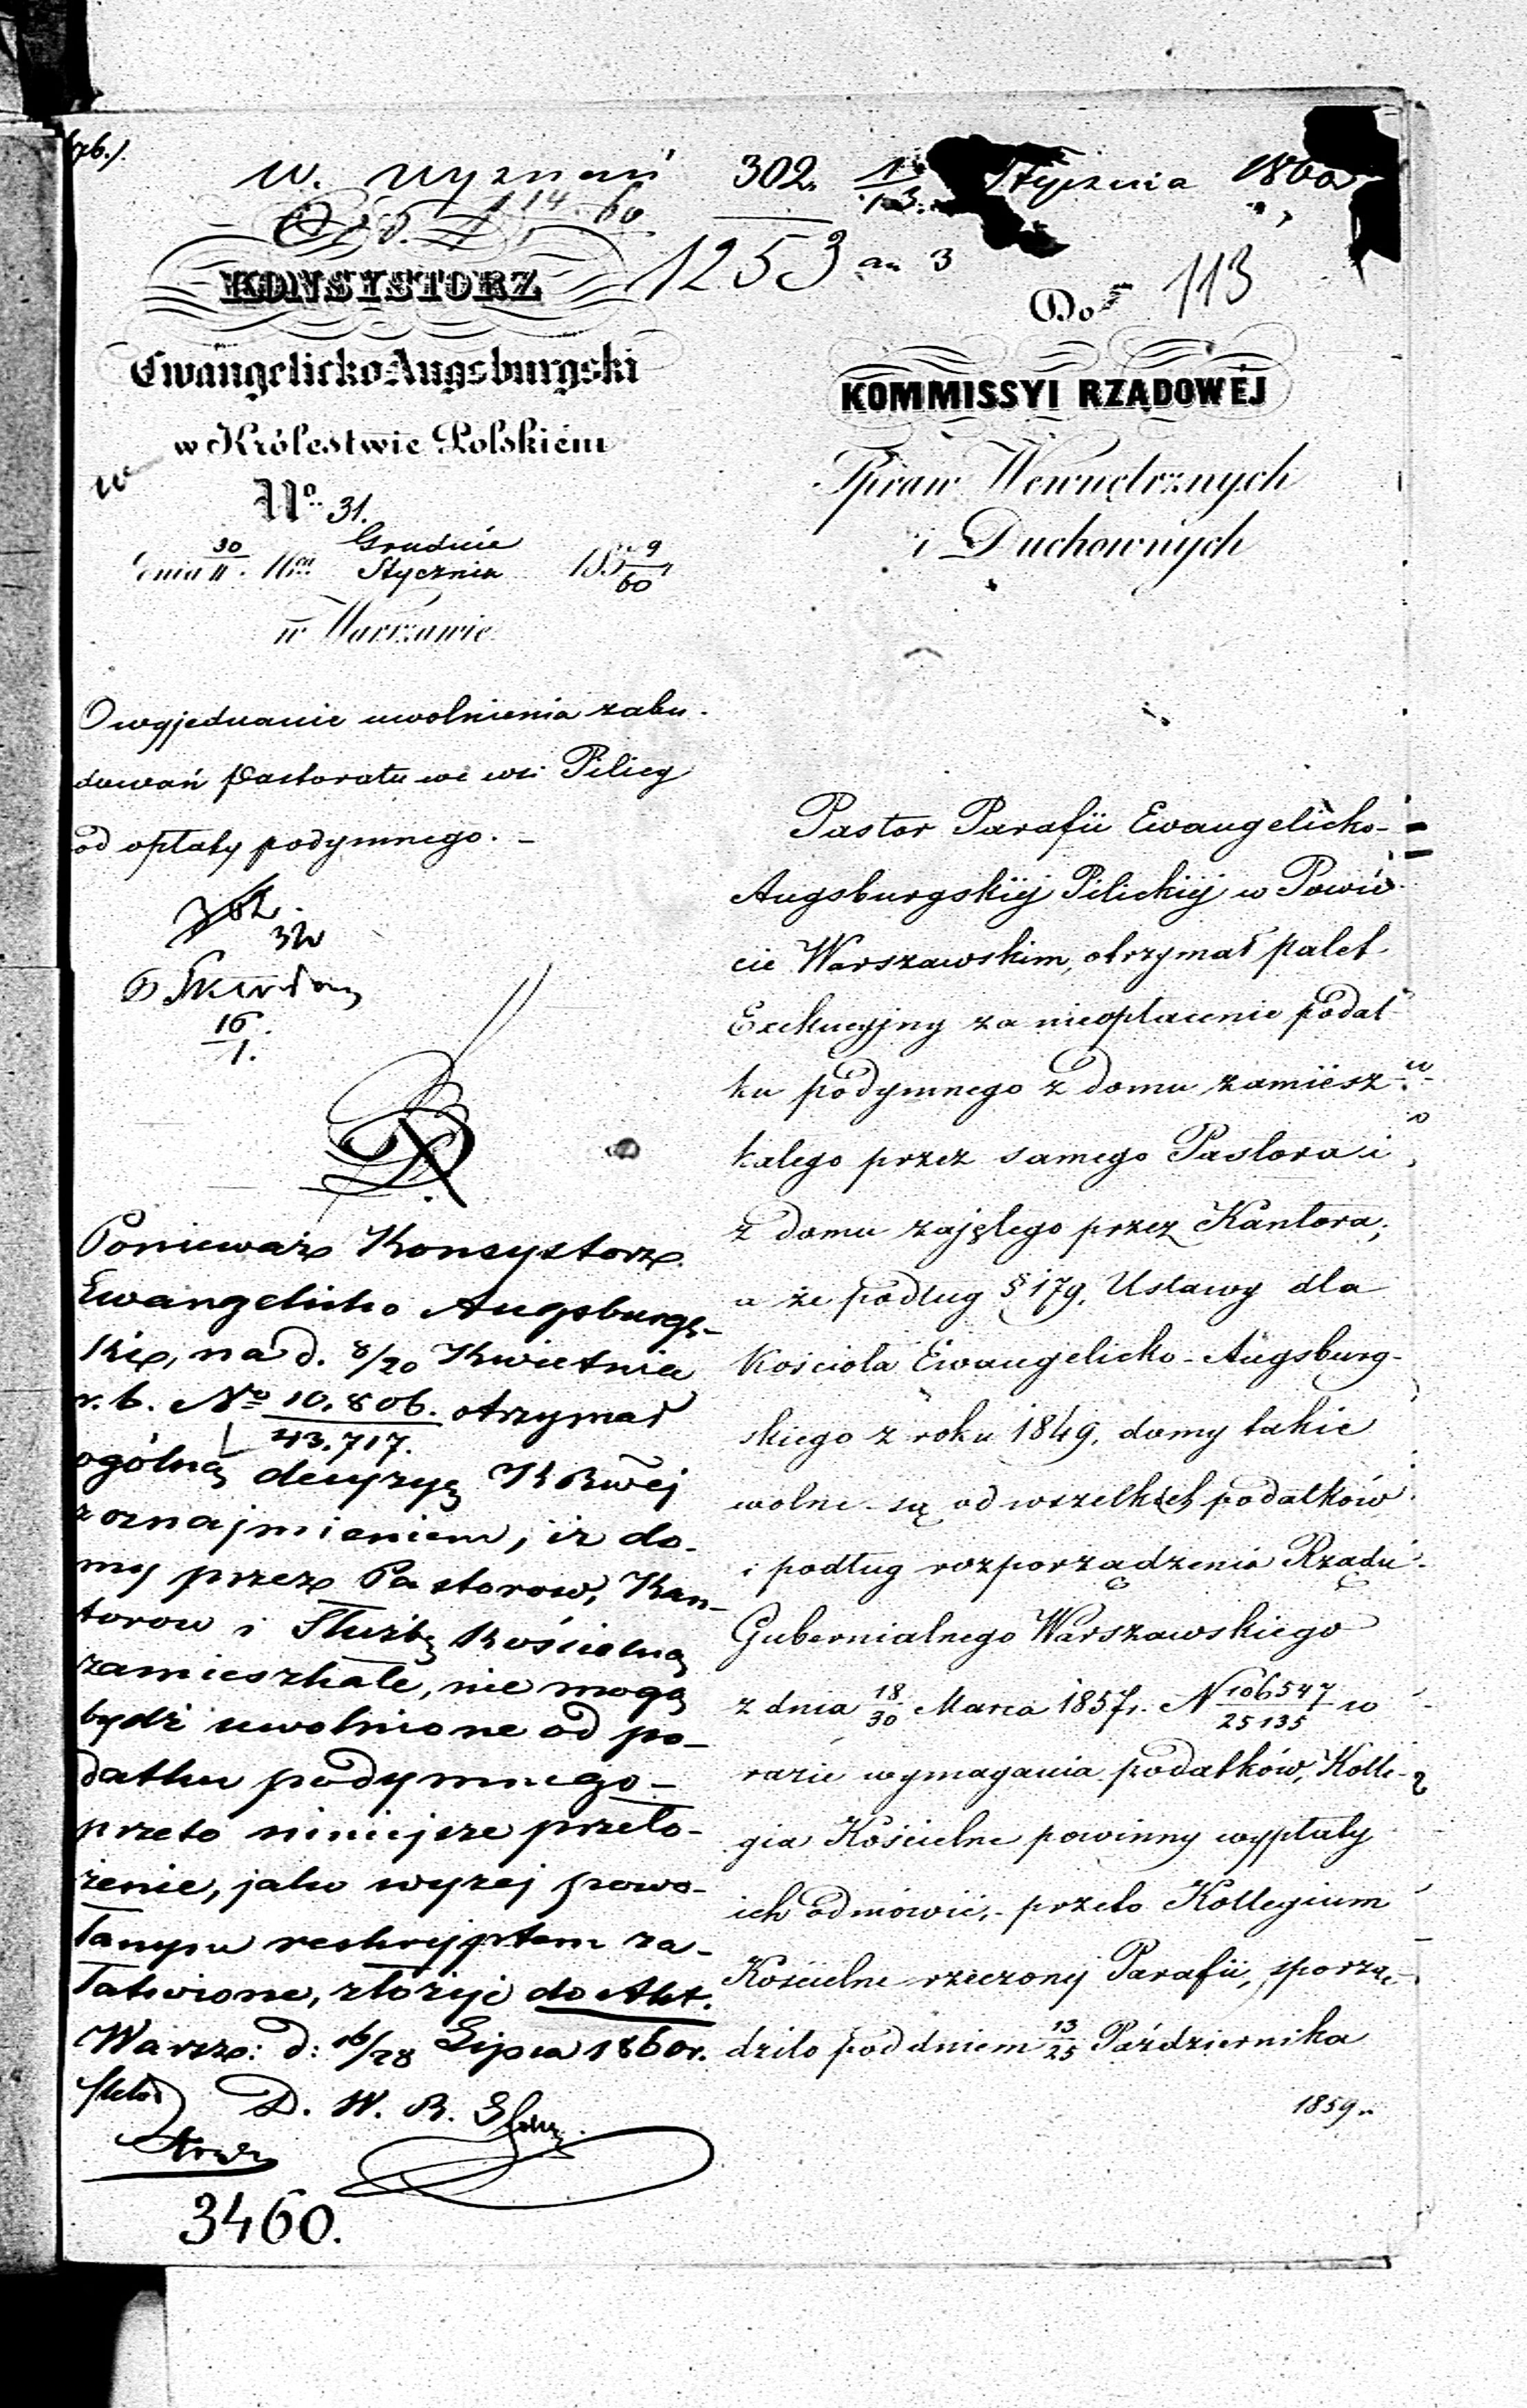 w. wyznań 302. 13 Stycznia 1860
14 60
1253 an 3
113
KONSYSTORZ
Ewangelicko Augsburgski
w Królestwie Polskiém
No. 31.
dnia 30/11 Grudnia/Stycznia 1859/60
w Warszawie
O wyjednanie uwolnienia zabu-
dowań Pastoratu we wsi Pilicy
od opłaty podymnego. –
16/1.
Ponieważ Konsystorz
Ewangelicko Augsburgs-
ki, na d. 8/20 Kwietnia
r. b. No 10,806./43,717. otrzymał
ogólną decyzyę KRwéj
z oznajmieniem, iż do-
my przez Pastorow, Kan-
torow i Służbę Kościelną
zamieszkałe, nie mogą
bydź uwolnione od po-
datku podymnego –
przeto niniejsze przeło-
żenie, jako wyżej powo-
łanym reskryptem za-
łatwione, złożyć do Akt.
Warsz: d: 16/28 Lipca 1860 r.
D. W. R.
3460.
Do
KOMMISSYI RZĄDOWÉJ
Spraw Wewnętrznych
i Duchownych
Pastor Parafii Ewangelicko-
Augsburgskiéj Pilickiéj w Powie-
cie Warszawskim, otrzymał palet
Exekucyjny za nieopłacenie podat-
ku podymnego z domu zamiesz-
kałego przez samego Pastora i
z domu zajętego przez Kantora,
a że podług § 179. Ustawy dla
Kościoła Ewangelicko-Augsburg-
skiego z roku 1849. domy takie
wolne są od wszelkich podatków
i podług rozporządzenia Rządu
Gubernialnego Warszawskiego
z dnia 18/30 Marca 1857 r. N 106547/25135 w
razie wymagania podatków, Kolle-
gia Kościelne powinny wypłaty
ich odmówić, – przeto Kollegium
Kościelne rzeczonéj Parafii, sporzą-
dziło pod dniem 13/25 Października
1859 r.